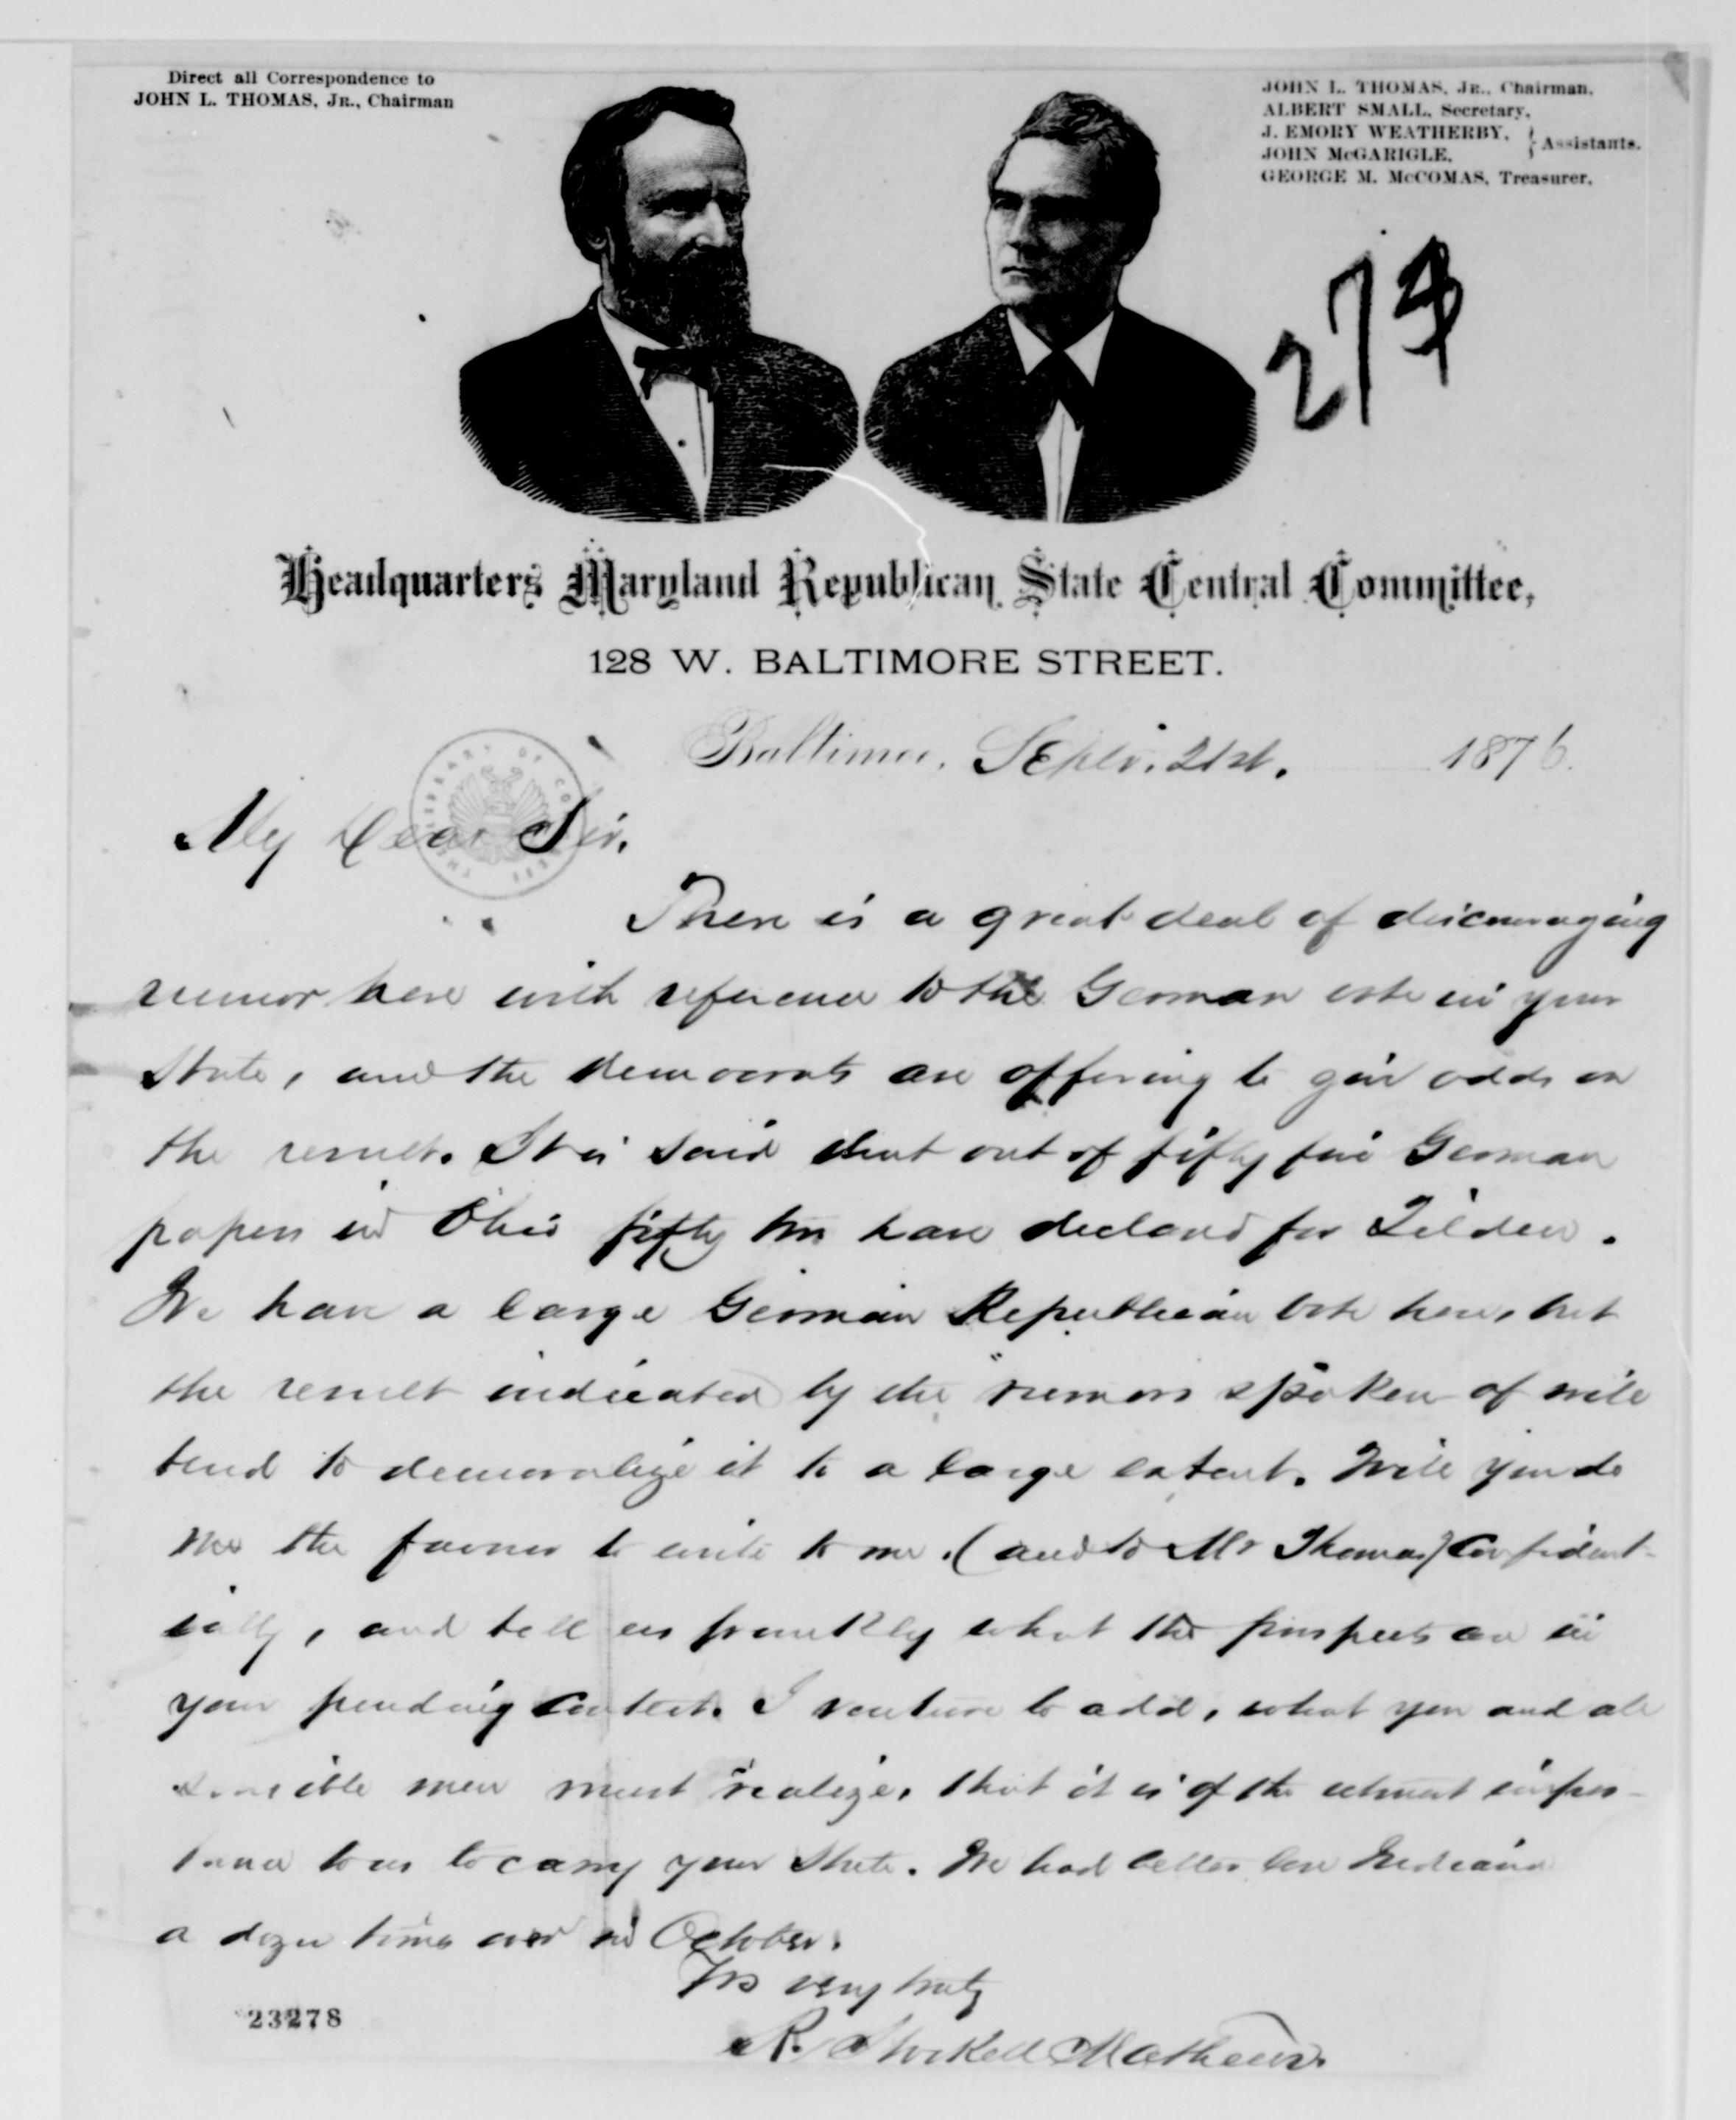 Direct all Correspondence to
JOHN L. THOMAS, JR., Chairman
JOHN L. THOMAS, JR., Chairman,
ALBERT SMALL, Secretary,
J. EMORY WEATHERBY,
JOHN McGARIGLE,
} Assistants.
GEORGE M. McCOMAS, Treasurer,
274
Headquarters Maryland Republican State Central Committee,
128 W. BALTIMORE STREET.
Baltimore, Septr. 21st. 1876.
My Dear Sir.
There is a great deal of discouraging
rumor here with reference to the German vote in your
State, and the democrats are offering to give odds on
the result. It is said that out of fifty five German
papers in Ohio fifty two have declared for Tilden.
We have a large German Republican vote here, but
the result indicated by the rumors spoken of will
tend to demoralize it to a large extent. Will you do
me the favor to write to me (and to Mr Thomas) confident-
ially, and tell us frankly what the prospects are in
your pending contest. I venture to add, what you and all
sensible men must realize, that it is of the utmost impor-
tance to us to carry your State. We had better lose Indiana
a dozen times over in October.
Yrs very truly
R. Stockett Mathews.
23278
LIBRARY OF CONGRESS